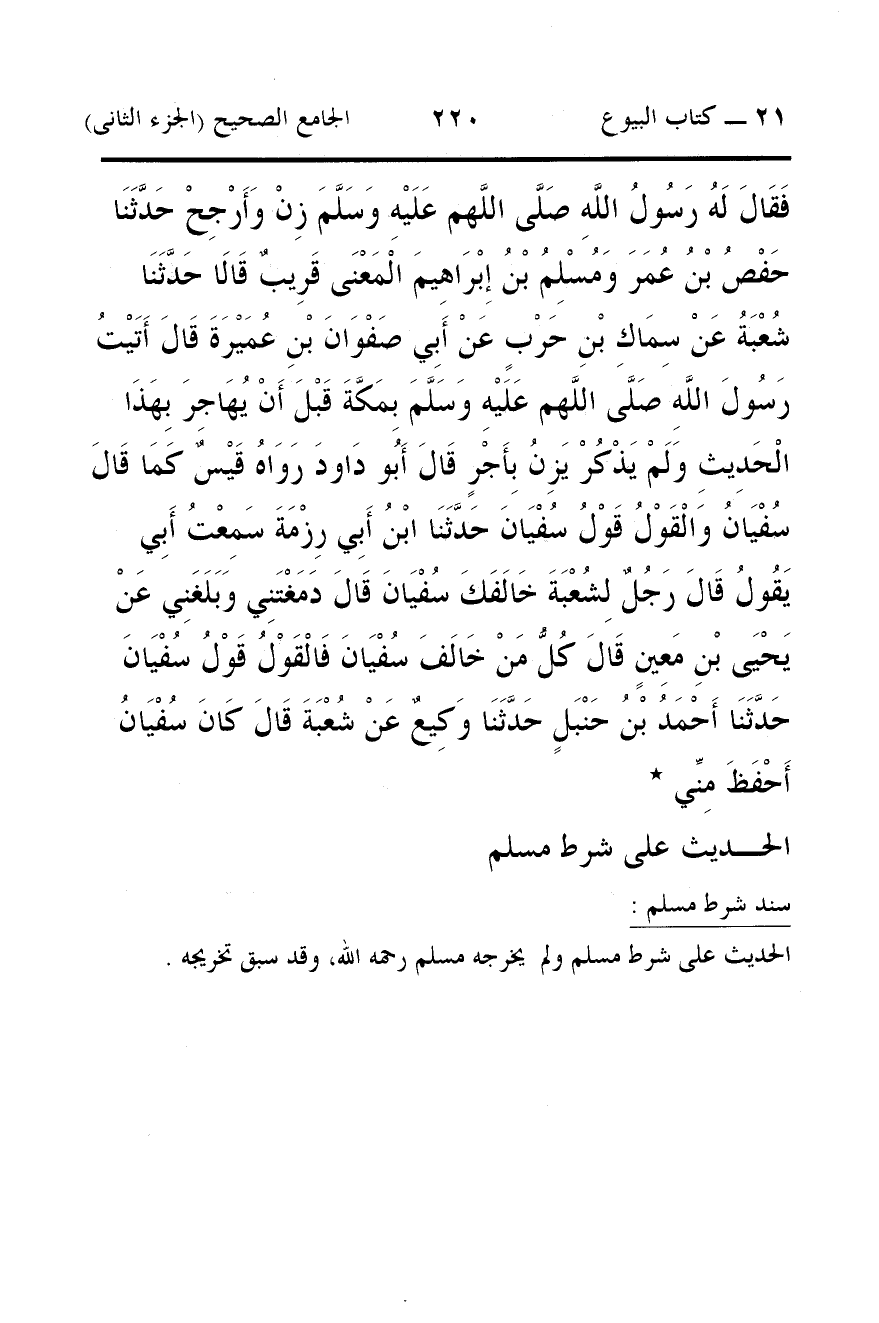 ٢١ ــ كتاب البيوع ٢٢٠ الجامع الصحيح (الجزء الثانى)
فَقَالَ لَهُ رَسُولُ اللَّهِ صَلَّى اللَّهم عَلَيْهِ وَسَلَّمَ زِنْ وَأَرْجِحْ حَدَّثَنَا
حَفْصُ بْنُ عُمَرَ وَمُسْلِمُ بْنُ إِبْرَاهِيمَ الْمَعْنَى قَرِيبٌ قَالَا حَدَّثَنَا
شُعْبَةُ عَنْ سِمَاكِ بْنِ حَرْبٍ عَنْ أَبِي صَفْوَانَ بْنِ عُمَيْرَةَ قَالَ أَتَيْتُ
رَسُولَ اللَّهِ صَلَّى اللَّهم عَلَيْهِ وَسَلَّمَ بِمَكَّةَ قَبْلَ أَنْ يُهَاجِرَ بِهَذَا
الْحَدِيثِ وَلَمْ يَذْكُرْ يَزِنُ بِأَجْرٍ قَالَ أَبُو دَاودَ رَوَاهُ قَيْسٌ كَمَا قَالَ
سُفْيَانُ وَالْقَوْلُ قَوْلُ سُفْيَانَ حَدَّثَنَا ابْنُ أَبِي رِزْمَةَ سَمِعْتُ أَبِي
يَقُولُ قَالَ رَجُلٌ لِشُعْبَةَ خَالَفَكَ سُفْيَانَ قَالَ دَمَغْتَنِي وَبَلَغَنِي عَنْ
يَحْيَى بْنِ مَعِينٍ قَالَ كُلُّ مَنْ خَالَفَ سُفْيَانَ فَالْقَوْلُ قَوْلُ سُفْيَانَ
حَدَّثَنَا أَحْمَدُ بْنُ حَنْبَلٍ حَدَّثَنَا وَكِيعٌ عَنْ شُعْبَةَ قَالَ كَانَ سُفْيَانُ
أَحْفَظَ مِنِّي *
الحـــديث على شرط مسلم
سند شرط مسلم :
الحديث على شرط مسلم ولم يخرجه مسلم رحمه الله، وقد سبق تخريجه .